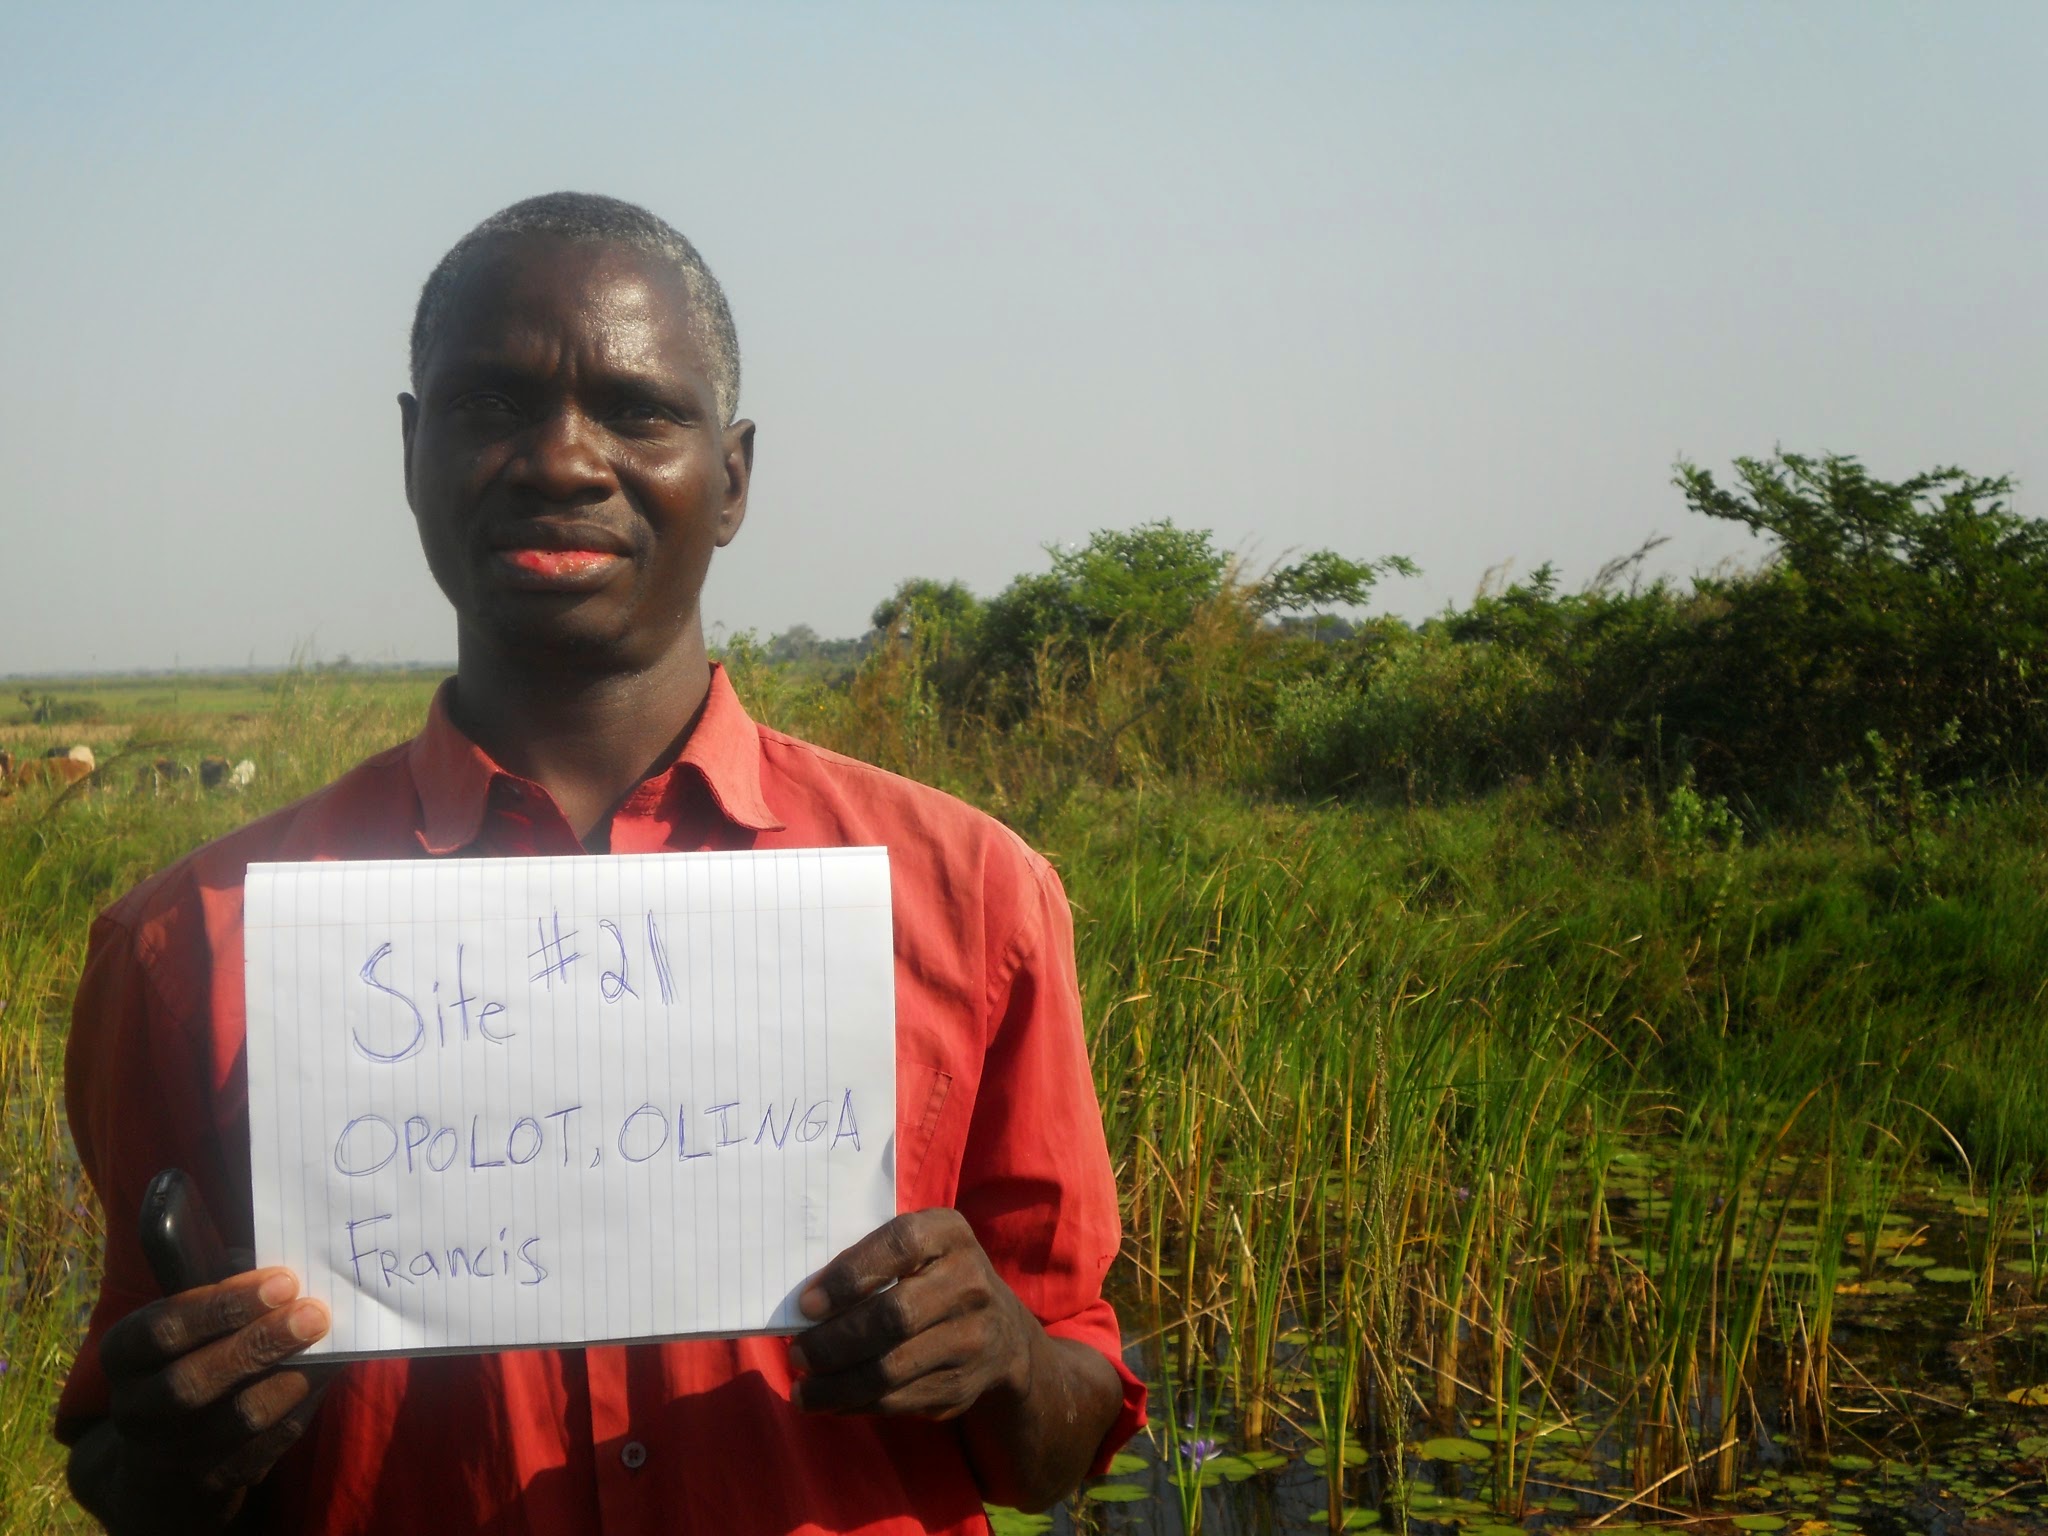 Site #21
OPOLOT, OLINGA
Francis